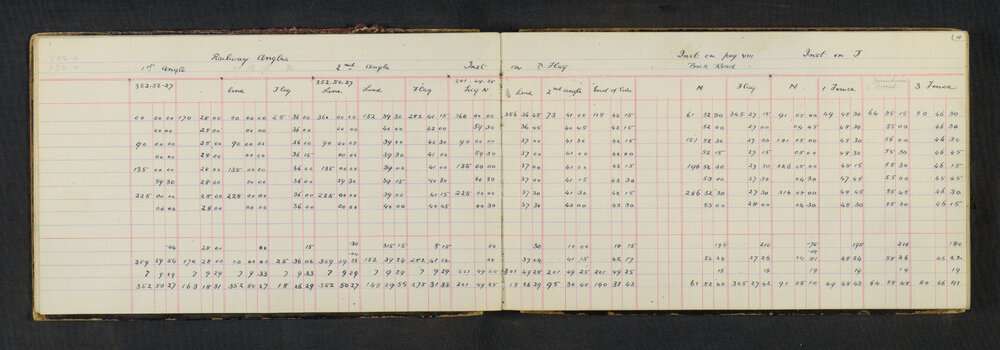 Railway Angles
1st Angle 2nd Angle Inst on P Flag Inst on peg VIII Inst on T
Back Road
352.50.27 352.50.27 201.49.25
Line Flag Line Line Flag Peg N ¼ Line 2nd angle End of Line N Flag N 1 Fence 3 Fence
00 00 00 170 28 00 00 00 00 25 36 00 360 00 00 152 39 30 282 41 15 360 00 00 356 36 45 73 41 00 118 42 15 61 52 30 345 27 15 91 05 00 49 48 30 64 55 15 80 46 30
00 00 28 00 00 00 36 00 00 00 40 00 42 00 59 30 36 45 40 45 42 15 52 00 27 00 04 45 48 30 55 00 46 30
90 00 00 28 00 90 00 00 36 00 90 00 00 39 00 40 30 90 00 00 37 00 41 00 42 15 151 52 30 27 30 181 05 00 48 30 56 00 46 30
00 00 28 00 00 00 36 15 00 00 39 30 41 00 59 30 37 00 41 00 42 00 52 15 27 15 05 00 48 30 55 30 46 45
135 00 00 28 00 135 00 00 36 00 135 00 00 39 00 41 00 135 00 00 37 00 41 30 42 15 196 52 30 27 30 226 05 00 48 15 55 30 46 15
59 30 28 00 00 00 36 00 59 30 39 15 40 30 00 30 37 00 41 00 42 15 53 00 27 30 04 30 47 45 55 00 45 45
225 00 00 28 00 225 00 00 36 00 225 00 00 39 00 41 15 225 00 00 37 30 41 30 42 15 286 52 30 27 30 316 05 00 48 45 55 45 46 30
00 00 28 00 00 00 36 00 00 00 40 00 40 45 00 30 37 30 40 00 42 30 53 00 28 00 04 30 48 30 55 30 46 15
-04 28 00 00 15 -30 315 15 8 15 00 30 10 00 18 15 195 210 -75 195 210 180
-04 -09
359 59 56 170 28 00 360 00 00 25 36 02 359 59 56 152 39 24 282 41 02 00 37 04 41 15 42 17 52 24 27 26 04 51 48 24 55 26 46 22
7 9 29 7 9 29 7 9 33 7 9 33 7 9 29 7 9 29 7 9 29 201 49 25 201 49 25 201 49 25 201 49 25 16 16 19 19 19 19
352 50 27 163 18 31 352 50 27 18 26 29 352 50 27 145 29 55 275 31 33 201 49 25 18 26 29 95 30 40 140 31 42 61 52 40 345 27 42 91 05 10 49 48 43 64 55 45 80 46 41